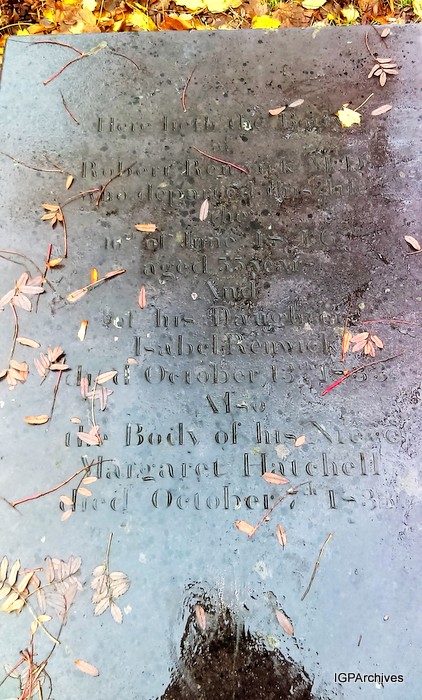 Here lieth the Body
of
Robert Renwick M.D.
who departed this life
the
of June
aged 55 years
And
of his Daughter
Isabel Renwick
died October 13th
Also
the Body of his Niece
Margaret Hatchell
died October 7th
IGPArchives